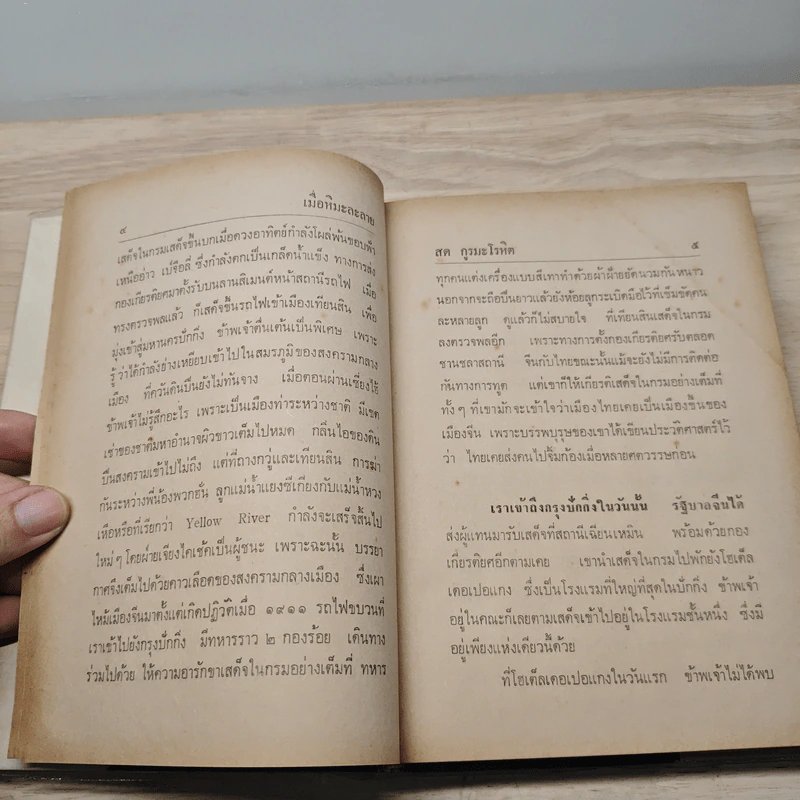 ๔ เมื่อหิมะละลาย
เสด็จในกรมเสด็จขึ้นบกเมื่อดวงอาทิตย์กำลังโผล่พ้นขอบฟ้า
เหนืออ่าว เปจิลี ซึ่งกำลังตกเป็นเกล็ดน้ำแข็ง ทางการส่ง
กองเกียรติยศมาตั้งรับบนลานสิเมนต์หน้าสถานีรถไฟ เมื่อ
ทรงตรวจพลแล้ว ก็เสด็จขึ้นรถไฟเข้าเมืองเทียนสิน เพื่อ
มุ่งเข้าสู่มหานครปักกิ่ง ข้าพเจ้าตื่นเต้นเป็นพิเศษ เพราะ
รู้ว่าได้กำลังย่างเหยียบเข้าไปในสมรภูมิของสงครามกลาง
เมือง ที่ควันดินปืนยังไม่ทันจาง เมื่อตอนผ่านเซี่ยงไฮ้
ข้าพเจ้าไม่รู้สึกอะไร เพราะเป็นเมืองท่าระหว่างชาติ มีเขต
เช่าของชาติมหาอำนาจผิวขาวเต็มไปหมด กลิ่นไอของดิน
ปืนสงครามเข้าไปไม่ถึง แต่ที่ถางกวู่และเทียนสิน การฆ่า
กันระหว่างพี่น้องพวกฮั่น ลูกแม่น้ำแยงซีเกียงกับแม่น้ำหวง
เหือหรือที่เรียกว่า Yellow River กำลังจะเสร็จสิ้นไป
ใหม่ๆ โดยฝ่ายเจียงไคเช้คเป็นผู้ชนะ เพราะฉะนั้น บรรยา
กาศจึงเต็มไปด้วยคาวเลือดของสงครามกลางเมือง ซึ่งเผา
ไหม้เมืองจีนมาตั้งแต่เกิดปฏิวัติเมื่อ ๑๙๑๑ รถไฟขบวนที่
เราเข้าไปยังกรุงปักกิ่ง มีทหารราว ๒ กองร้อย เดินทาง
ร่วมไปด้วย ให้ความอารักขาเสด็จในกรมอย่างเต็มที่ ทหาร
สด กูรมะโรหิต ๕
ทุกคนแต่งเครื่องแบบสีเทาทำด้วยผ้าฝ้ายยัดนวมกันหนาว
นอกจากจะถือปืนยาวแล้วยังห้อยลูกระเบิดมือไว้ที่เข็มขัดคน
ละหลายลูก ดูแล้วก็ไม่สบายใจ ที่เทียนสินเสด็จในกรม
ลงตรวจพลอีก เพราะทางการตั้งกองเกียรติยศรับตลอด
ชานชลาสถานี จีนกับไทยขณะนั้นแม้จะยังไม่มีการติดต่อ
กันทางการทูต แต่เขาก็ให้เกียรติเสด็จในกรมอย่างเต็มที่
ทั้งๆ ที่เขามักจะเข้าใจว่าเมืองไทยเคยเป็นเมืองขึ้นของ
เมืองจีน เพราะบรรพบุรุษของเขาได้เขียนประวัติศาสตร์ไว้
ว่า ไทยเคยส่งคนไปจิ้มก้องเมื่อหลายศตวรรษก่อน
เราเข้าถึงกรุงปักกิ่งในวันนั้น รัฐบาลจีนได้
ส่งผู้แทนมารับเสด็จที่สถานีเฉียนเหมิน พร้อมด้วยกอง
เกียรติยศอีกตามเคย เขานำเสด็จในกรมไปพักยังโฮเต็ล
เดอเปอแกง ซึ่งเป็นโรงแรมที่ใหญ่ที่สุดในปักกิ่ง ข้าพเจ้า
อยู่ในคณะก็เลยตามเสด็จเข้าไปอยู่ในโรงแรมชั้นหนึ่ง ซึ่งมี
อยู่เพียงแห่งเดียวนี้ด้วย
ที่โฮเต็ลเดอเปอแกงในวันแรก ข้าพเจ้าไม่ได้พบ